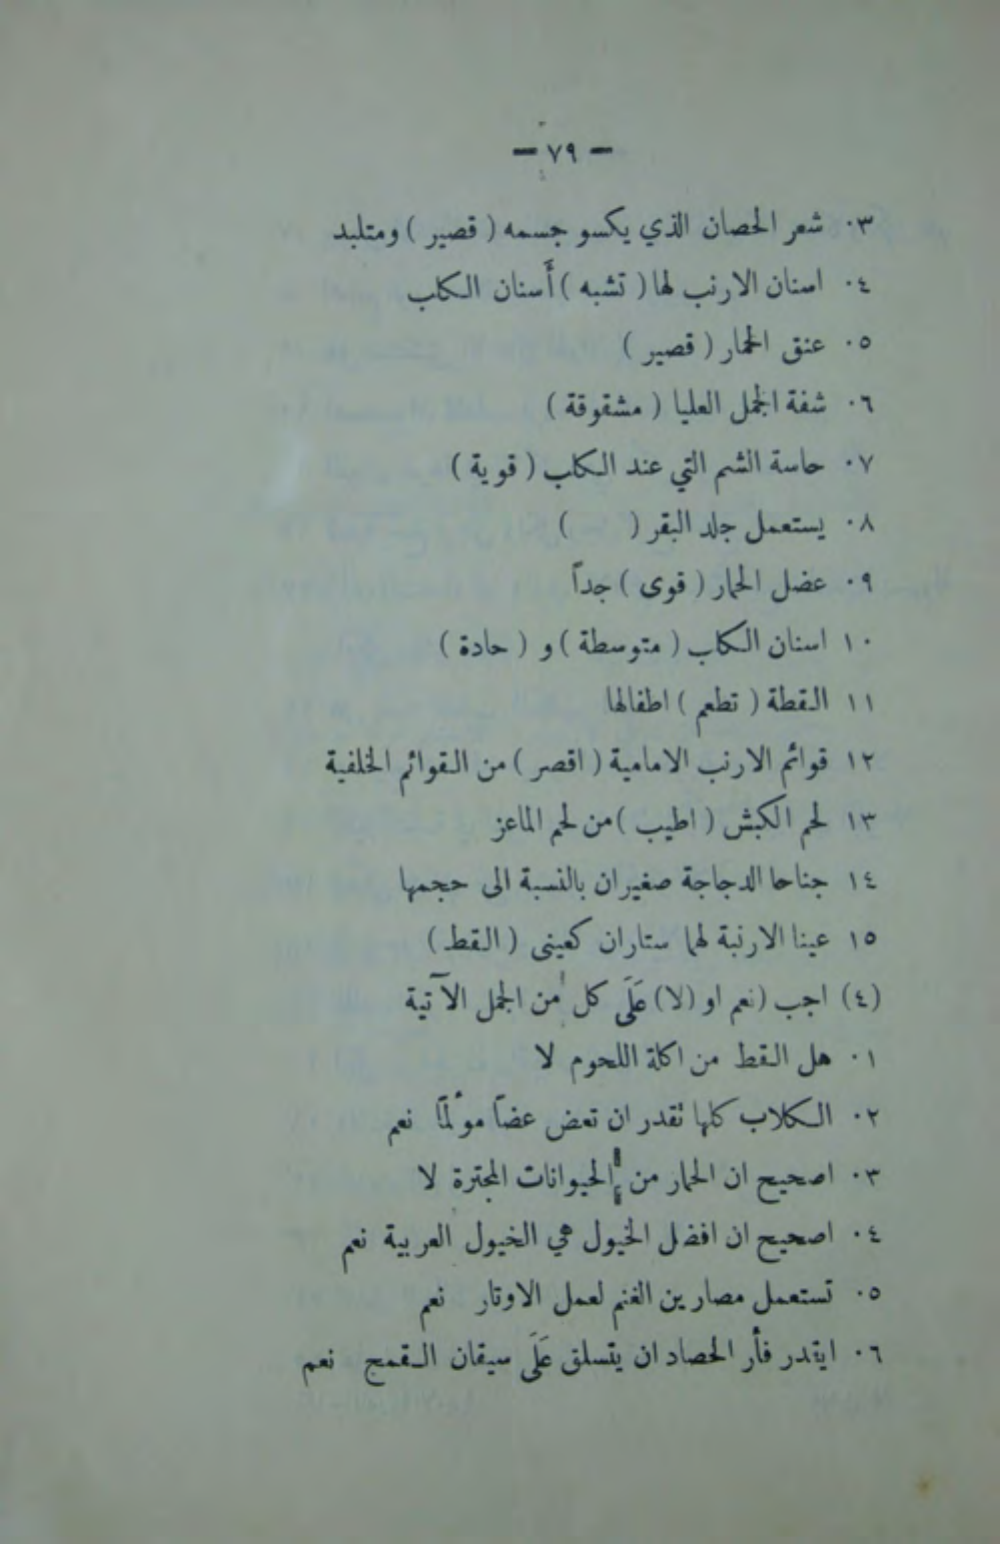 — ٧٩ —
٠٣ شعر الحصان الذي يكسو جسمه ( قصير ) ومتلبد
٠٤ اسنان الارنب لها ( تشبه ) أَسنان الكلب
٠٥ عنق الحمار ( قصير )
٠٦ شفة الجمل العليا ( مشقوقة )
٠٧ حاسة الشم التي عند الكلب ( قوية )
٠٨ يستعمل جلد البقر ( )
٠٩ عضل الحمار ( قوى ) جداً
١٠ اسنان الكلب ( متوسطة ) و ( حادة )
١١ القطة ( تطعم ) اطفالها
١٢ قوائم الارنب الامامية ( اقصر ) من القوائم الخلفية
١٣ لحم الكبش ( اطيب ) من لحم الماعز
١٤ جناحا الدجاجة صغيران بالنسبة الى حجمها
١٥ عينا الارنبة لهما ستاران كعينى ( القط )
(٤) اجب (نعم او (لا) عَلَى كل من الجمل الآتية
٠١ هل القط من اكلة اللحوم لا
٠٢ الكلاب كلها تقدر ان تعض عضاً مؤلماً نعم
٠٣ اصحيح ان الحمار من الحيوانات المجترة لا
٠٤ اصحيح ان افضل الخيول هي الخيول العربية نعم
٠٥ تستعمل مصارين الغنم لعمل الاوتار نعم
٠٦ ايقدر فأر الحصاد ان يتسلق عَلَى سيقان القمح نعم